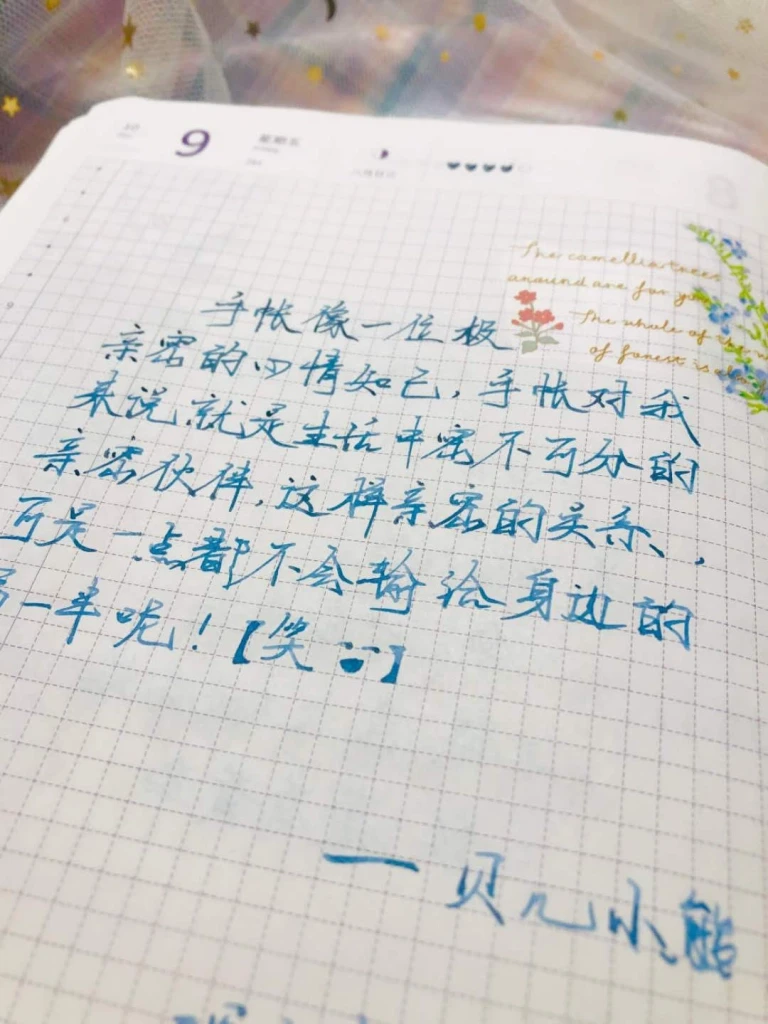 10
9
星期五
手帐像一位极
亲密的心情知己，手帐对我
来说就是生活中密不可分的
亲密伙伴，这样亲密的关系，
可是一点都不会输给身边的
另一半呢！【笑 】
— 贝儿小熊
The camellia trees
around are for you
The whole of the
of forest is
9